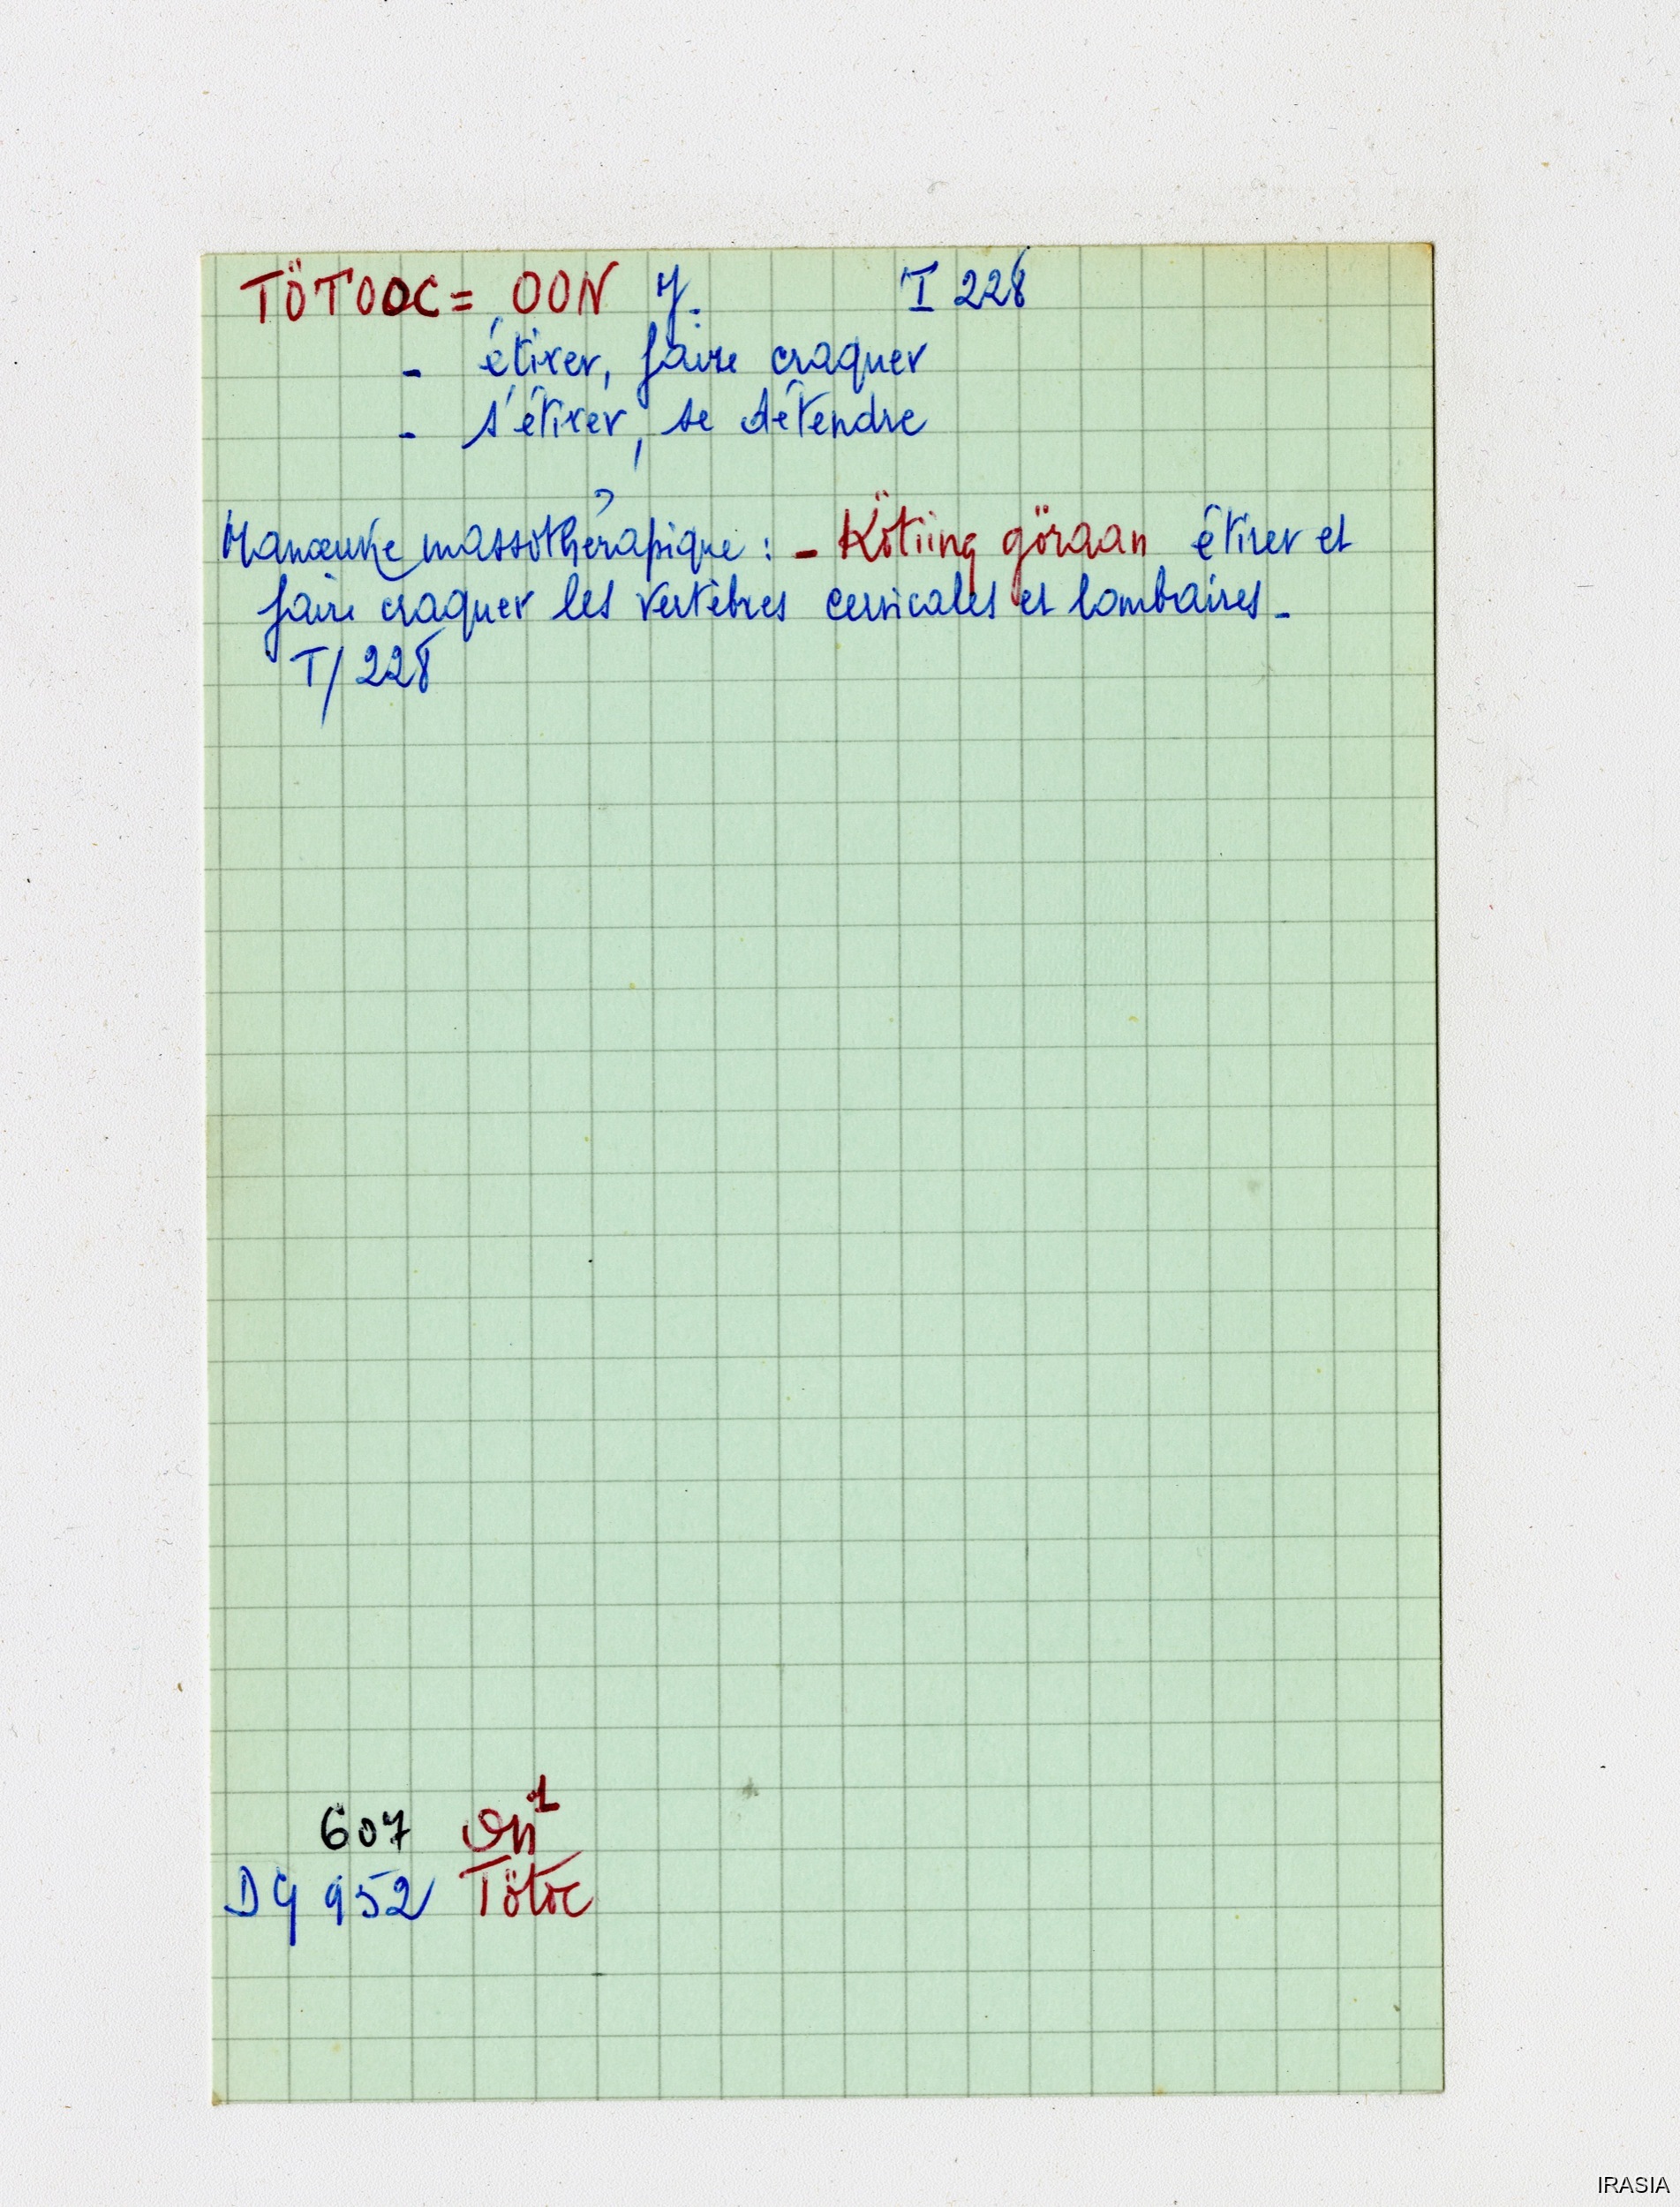 TÖTOOC = OON y. I 228
- étirer, faire craquer
- s'étirer, se détendre
Manœuvre massothérapique : - Kötiing göraan étirer et
faire craquer les vertèbres cervicales et lombaires -
T/ 228
607 On¹
DG 952 Tötoc
IRASIA